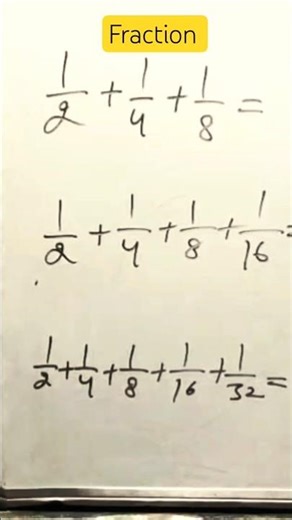 Fraction
1/2 + 1/4 + 1/8 =
1/2 + 1/4 + 1/8 + 1/16 =
1/2 + 1/4 + 1/8 + 1/16 + 1/32 =